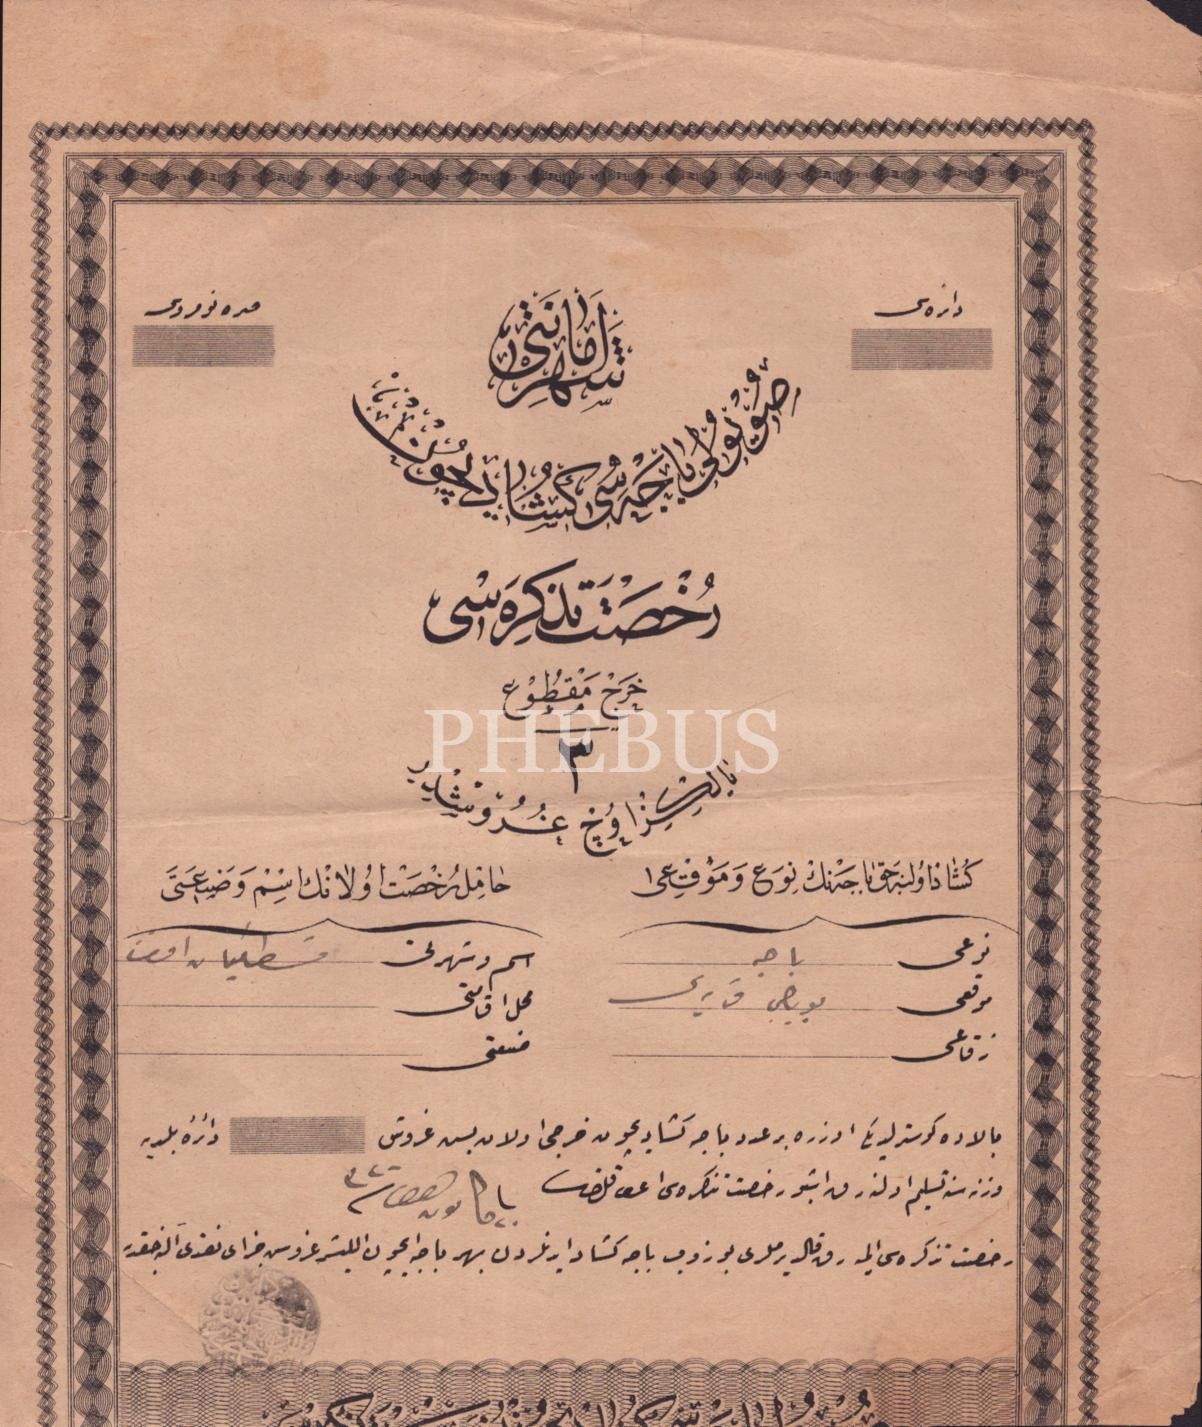 دائره‌سی
صره نومروسی
شهر امانتی
صو یولی باجه‌سی کشادیچون
رخصت تذکره‌سی
خرج مقطوع
٣
یالکز اوچ غروشدر
کشاد اولنه‌جق باجه‌نك نوع و موقعی
حامل رخصت اولانك اسم و صنعتی
نوعی باجه
اسم و شهرتی
موقعی
محل اقامتی
زقاغی
صنعتی
بالاده کوسترلدیکی اوزره بر عدد باجه کشادیچون خرجی اولان بش غروش دائره بلدیه
وزنه‌سنه تسلیم اولنه‌رق اشبو رخصت تذکره‌سی اعطا قلندی
رخصت تذکره‌سی المه‌رق قالدیرملری بوزوب باجه کشاد ایدنلردن بهر باجه ایچون اللیشر غروش جزای نقدی آلنه‌جقدر
PHEBUS